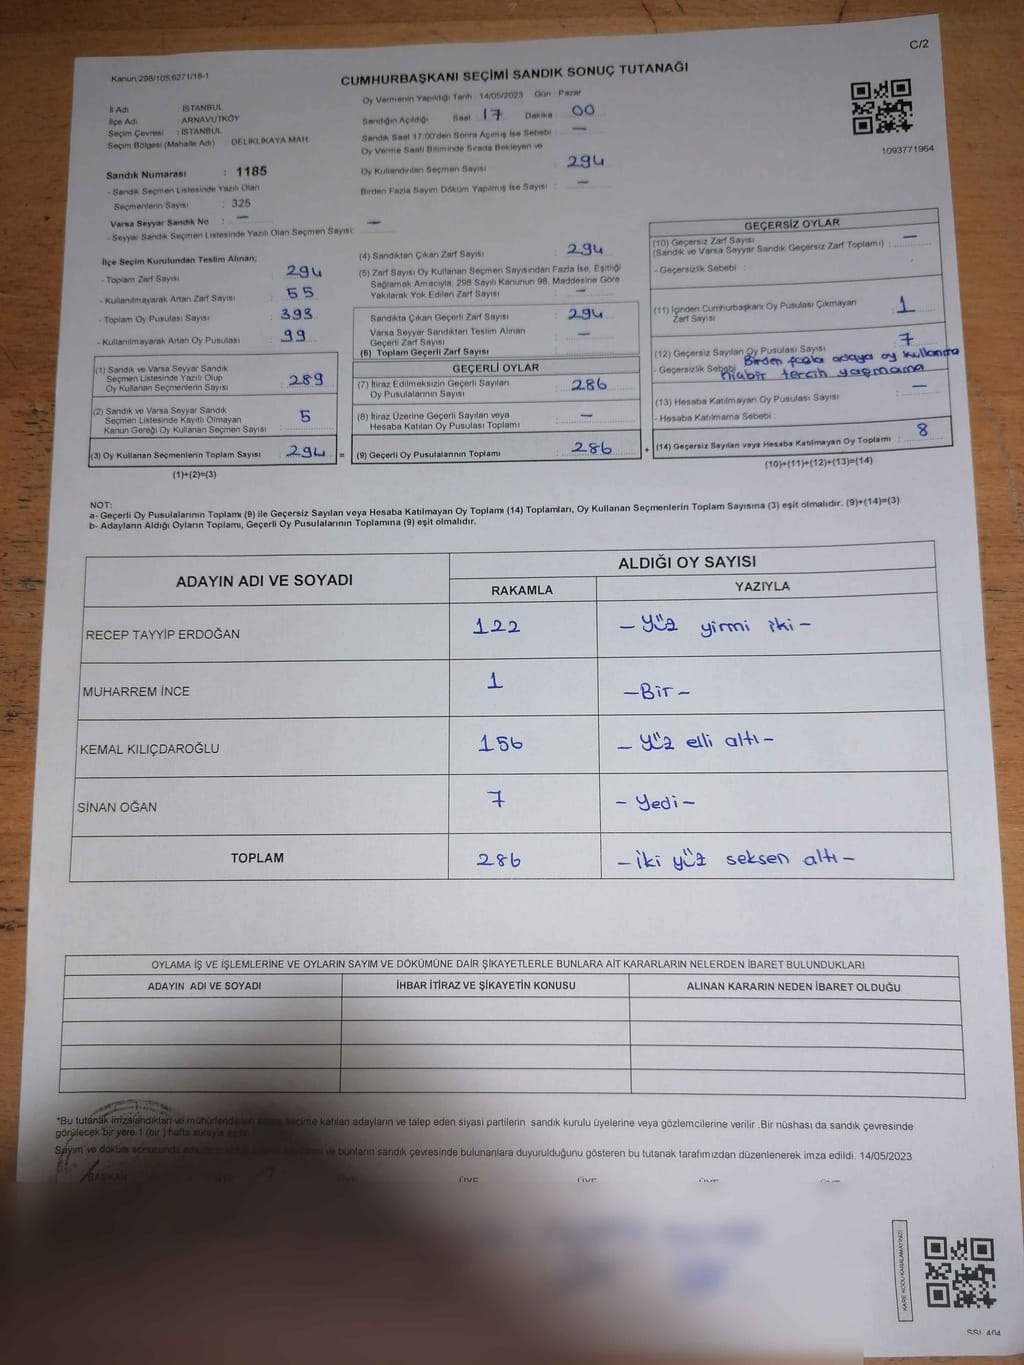 C/2
Kanun:298/105;6271/18-1
CUMHURBAŞKANI SEÇİMİ SANDIK SONUÇ TUTANAĞI
İl Adı : İSTANBUL
İlçe Adı : ARNAVUTKÖY
Seçim Çevresi : İSTANBUL
Seçim Bölgesi (Mahalle Adı) : DELİKLİKAYA MAH.
Sandık Numarası : 1185
- Sandık Seçmen Listesinde Yazılı Olan
Seçmenlerin Sayısı : 325
Varsa Seyyar Sandık No : —
- Seyyar Sandık Seçmen Listesinde Yazılı Olan Seçmen Sayısı: —
Oy Vermenin Yapıldığı Tarih 14/05/2023 Gün : Pazar
Sandığın Açıldığı Saat 17 Dakika 00
Sandık Saat 17:00'den Sonra Açılmış İse Sebebi : —
Oy Verme Saati Bitiminde Sırada Bekleyen ve
Oy Kullandırılan Seçmen Sayısı : 294
Birden Fazla Sayım Döküm Yapılmış İse Sayısı : —
1093771964
İlçe Seçim Kurulundan Teslim Alınan;
- Toplam Zarf Sayısı : 294
- Kullanılmayarak Artan Zarf Sayısı : 55
- Toplam Oy Pusulası Sayısı : 393
- Kullanılmayarak Artan Oy Pusulası : 99
(1) Sandık ve Varsa Seyyar Sandık
Seçmen Listesinde Yazılı Olup
Oy Kullanan Seçmenlerin Sayısı : 289
(2) Sandık ve Varsa Seyyar Sandık
Seçmen Listesinde Kayıtlı Olmayan
Kanun Gereği Oy Kullanan Seçmen Sayısı : 5
(3) Oy Kullanan Seçmenlerin Toplam Sayısı : 294 =
(1)+(2)=(3)
(4) Sandıktan Çıkan Zarf Sayısı : 294
(5) Zarf Sayısı Oy Kullanan Seçmen Sayısından Fazla İse, Eşitliği
Sağlamak Amacıyla; 298 Sayılı Kanunun 98. Maddesine Göre
Yakılarak Yok Edilen Zarf Sayısı : —
Sandıkta Çıkan Geçerli Zarf Sayısı : 294
Varsa Seyyar Sandıktan Teslim Alınan
Geçerli Zarf Sayısı : —
(6) Toplam Geçerli Zarf Sayısı :
GEÇERLİ OYLAR
(7) İtiraz Edilmeksizin Geçerli Sayılan
Oy Pusulalarının Sayısı : 286
(8) İtiraz Üzerine Geçerli Sayılan veya
Hesaba Katılan Oy Pusulası Toplamı : —
(9) Geçerli Oy Pusulalarının Toplamı : 286 +
GEÇERSİZ OYLAR
(10) Geçersiz Zarf Sayısı : —
(Sandık ve Varsa Seyyar Sandık Geçersiz Zarf Toplamı)
- Geçersizlik Sebebi :
(11) İçinden Cumhurbaşkanı Oy Pusulası Çıkmayan
Zarf Sayısı : 1
(12) Geçersiz Sayılan Oy Pusulası Sayısı : 7
- Geçersizlik Sebebi : Birden fazla adaya oy kullanma
hiçbir tercih yapmama
(13) Hesaba Katılmayan Oy Pusulası Sayısı : —
- Hesaba Katılmama Sebebi :
(14) Geçersiz Sayılan veya Hesaba Katılmayan Oy Toplamı : 8
(10)+(11)+(12)+(13)=(14)
NOT:
a- Geçerli Oy Pusulalarının Toplamı (9) ile Geçersiz Sayılan veya Hesaba Katılmayan Oy Toplamı (14) Toplamları, Oy Kullanan Seçmenlerin Toplam Sayısına (3) eşit olmalıdır. (9)+(14)=(3)
b- Adayların Aldığı Oyların Toplamı, Geçerli Oy Pusulalarının Toplamına (9) eşit olmalıdır.
ADAYIN ADI VE SOYADI
ALDIĞI OY SAYISI
RAKAMLA YAZIYLA
RECEP TAYYİP ERDOĞAN 122 – Yüz yirmi iki –
MUHARREM İNCE 1 – Bir –
KEMAL KILIÇDAROĞLU 156 – Yüz elli altı –
SİNAN OĞAN 7 – Yedi –
TOPLAM 286 – iki yüz seksen altı –
OYLAMA İŞ VE İŞLEMLERİNE VE OYLARIN SAYIM VE DÖKÜMÜNE DAİR ŞİKAYETLERLE BUNLARA AİT KARARLARIN NELERDEN İBARET BULUNDUKLARI
ADAYIN ADI VE SOYADI İHBAR İTİRAZ VE ŞİKAYETİN KONUSU ALINAN KARARIN NEDEN İBARET OLDUĞU
*Bu tutanak imzalandıktan ve mühürlendikten seçime katılan adayların ve talep eden siyasi partilerin sandık kurulu üyelerine veya gözlemcilerine verilir .Bir nüshası da sandık çevresinde
görülecek bir yere 1 (bir ) hafta süreyle asılır.
Sayım ve döküm sonucunda ve bunların sandık çevresinde bulunanlara duyurulduğunu gösteren bu tutanak tarafımızdan düzenlenerek imza edildi. 14/05/2023
BAŞKAN ÜYE ÜYE ÜYE
KARE KODU KARALAMAYINIZ!